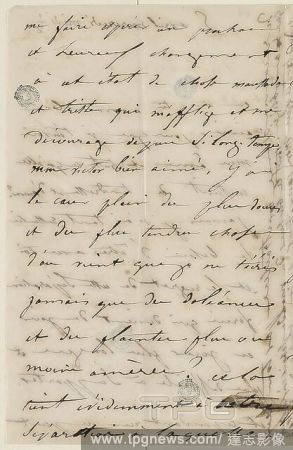 me faire espérer un prochain
et heureux changement
à cet état de chose maussade
et triste qui m'afflige et me
décourage depuis si longtemps
mon Victor bien aimé. J'ai
le cœur plein des plus douces
et des plus tendres choses
d'où vient que je ne t'écris
jamais que des doléances
et des plaintes plus ou
moins amères? cela
tient évidemment à
TPG
www.tpgnews.com / 達志影像